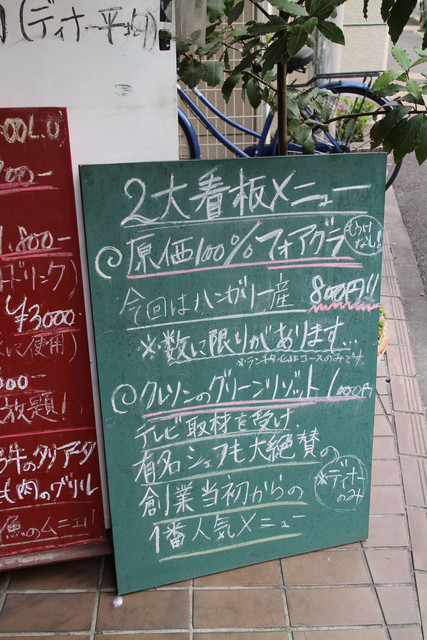 (ディナー平均)
00L.O
900-
1.800-
ドリンク)
¥3000
に使用)
00-
放題!
牛のタリアータ
肉のグリル
魚のムニエル
2大看板メニュー
◎原価100%フォアグラ
もうけなし!!
今回はハンガリー産 800円!!
※数に限りがあります…
※ランチタイムはコースのみです。
◎クレソンのグリーンリゾット 1000円
テレビ取材を受け
有名シェフも大絶賛の
創業当初からの
1番人気メニュー
※ディナーのみ